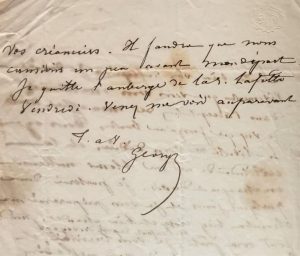 vos créanciers. Il faudra que nous
un peu avant mon départ
Je quitte l'auberge de la r. Lafitte
Vendredi. Venez me voir auparavant
T. a V.
George